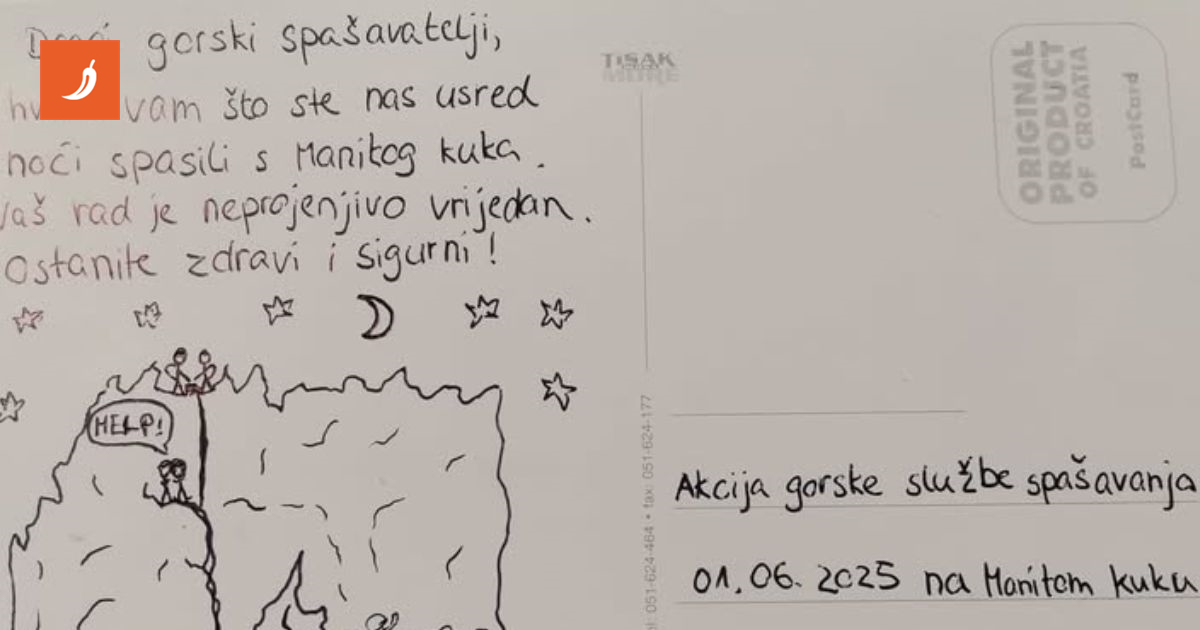 gorski spašavatelji,
vam što ste nas usred
noći spasili s Manitog kuka.
Vaš rad je neprojenjivo vrijedan.
Ostanite zdravi i sigurni!
HELP!
TISAK
MORE
ORIGINAL
PRODUCT
OF CROATIA
PostCard
051-624-464 • fax: 051-624-177
Akcija gorske službe spašavanja
01.06.2025 na Manitom kuku